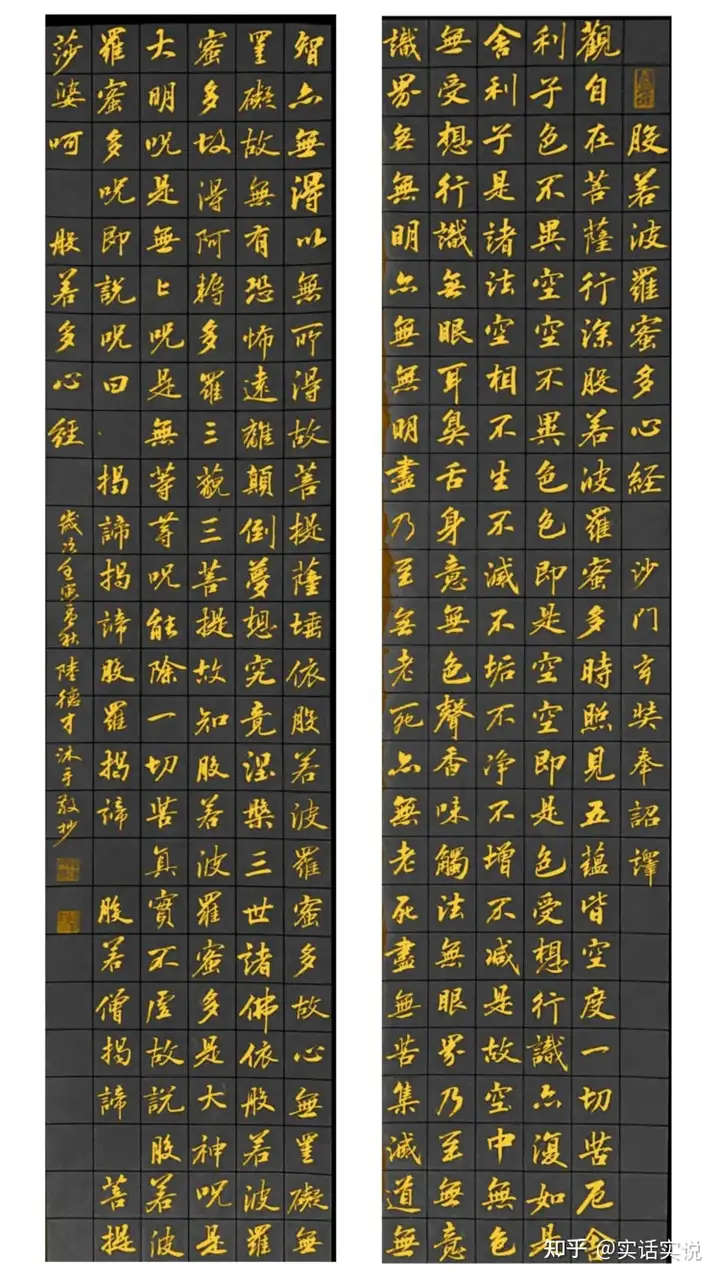 般若波羅蜜多心経 沙门玄奘奉詔譯
觀自在菩薩行深般若波羅蜜多時照見五蘊皆空度一切苦厄舍
利子色不異空空不異色色即是空空即是色受想行識亦復如是
舍利子是諸法空相不生不滅不垢不净不增不减是故空中無色
無受想行識無眼耳鼻舌身意無色聲香味觸法無眼界乃至無意
識界無無明亦無無明盡乃至無老死亦無老死盡無苦集滅道無
智亦無得以無所得故菩提薩埵依般若波羅蜜多故心無罣礙無
罣礙故無有恐怖遠離顛倒夢想究竟涅槃三世諸佛依般若波羅
蜜多故得阿耨多羅三藐三菩提故知般若波羅蜜多是大神呪是
大明呪是無上呪是無等等呪能除一切苦真實不虛故説般若波
羅蜜多呪即説呪曰 揭諦揭諦般羅揭諦 般若僧揭諦 菩提
莎婆呵 般若多心經 歲次壬寅秋 陸德才沐手敬抄
知乎 @实话实说